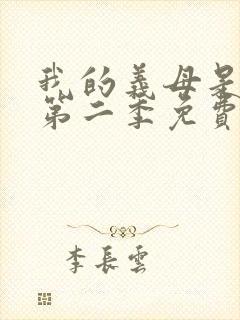 我的義母是
第二季免費
李長雲